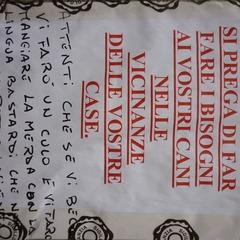 SI PREGA DI FAR
FARE I BISOGNI
AI VOSTRI CANI
NELLE
VICINANZE
DELLE VOSTRE
CASE.
ATTENTI CHE SE VI BEC
VI FARÒ UN CULO E VI FARÒ
MANGIARE LA MERDA CON LA
LINGUA BASTARDI CHE N